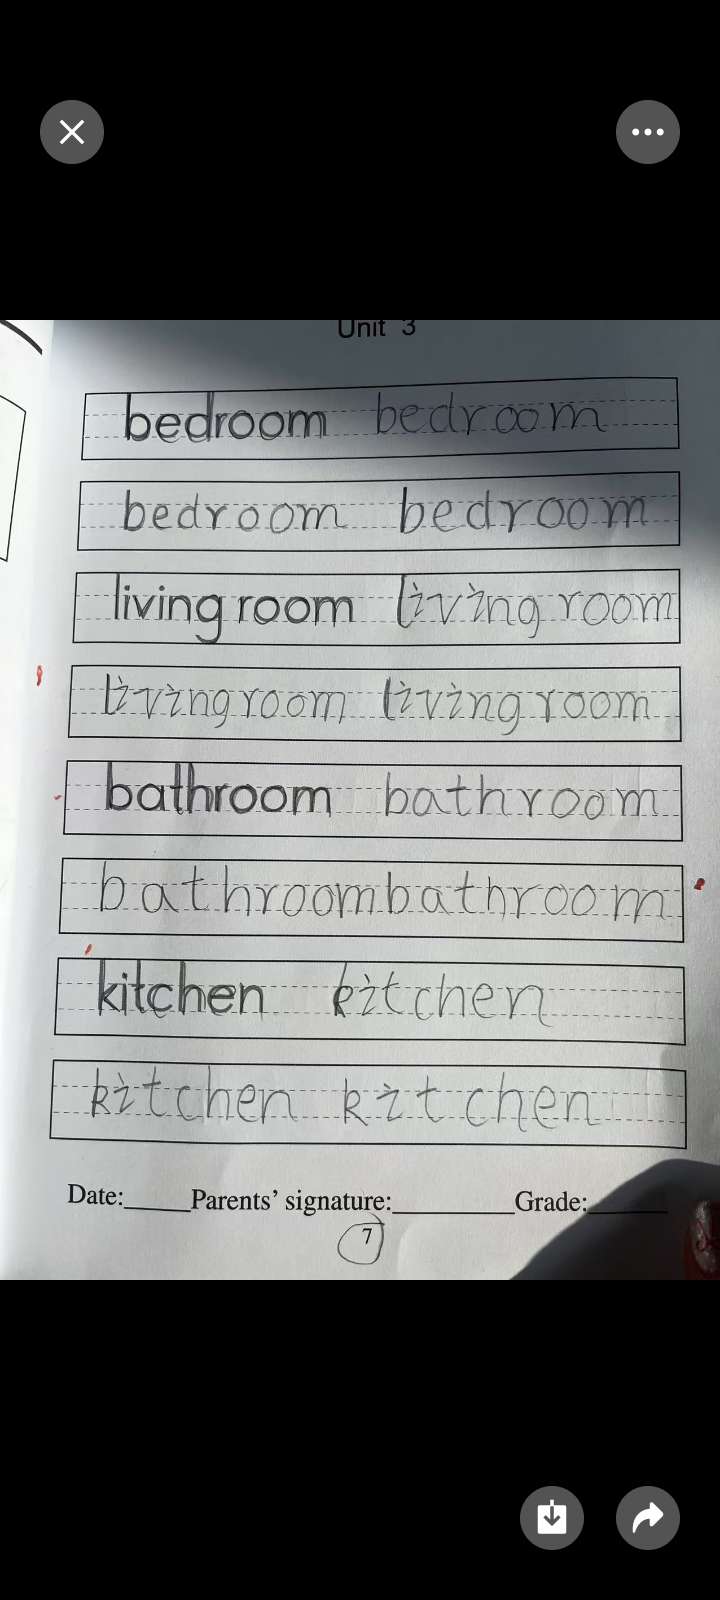 Unit 3
bedroom bedroom
bedroom bedroom
living room living room
living room living room
bathroom bathroom
bathroom bathroom
kitchen kitchen
kitchen kitchen
Date:_____Parents' signature:_________Grade:______
7